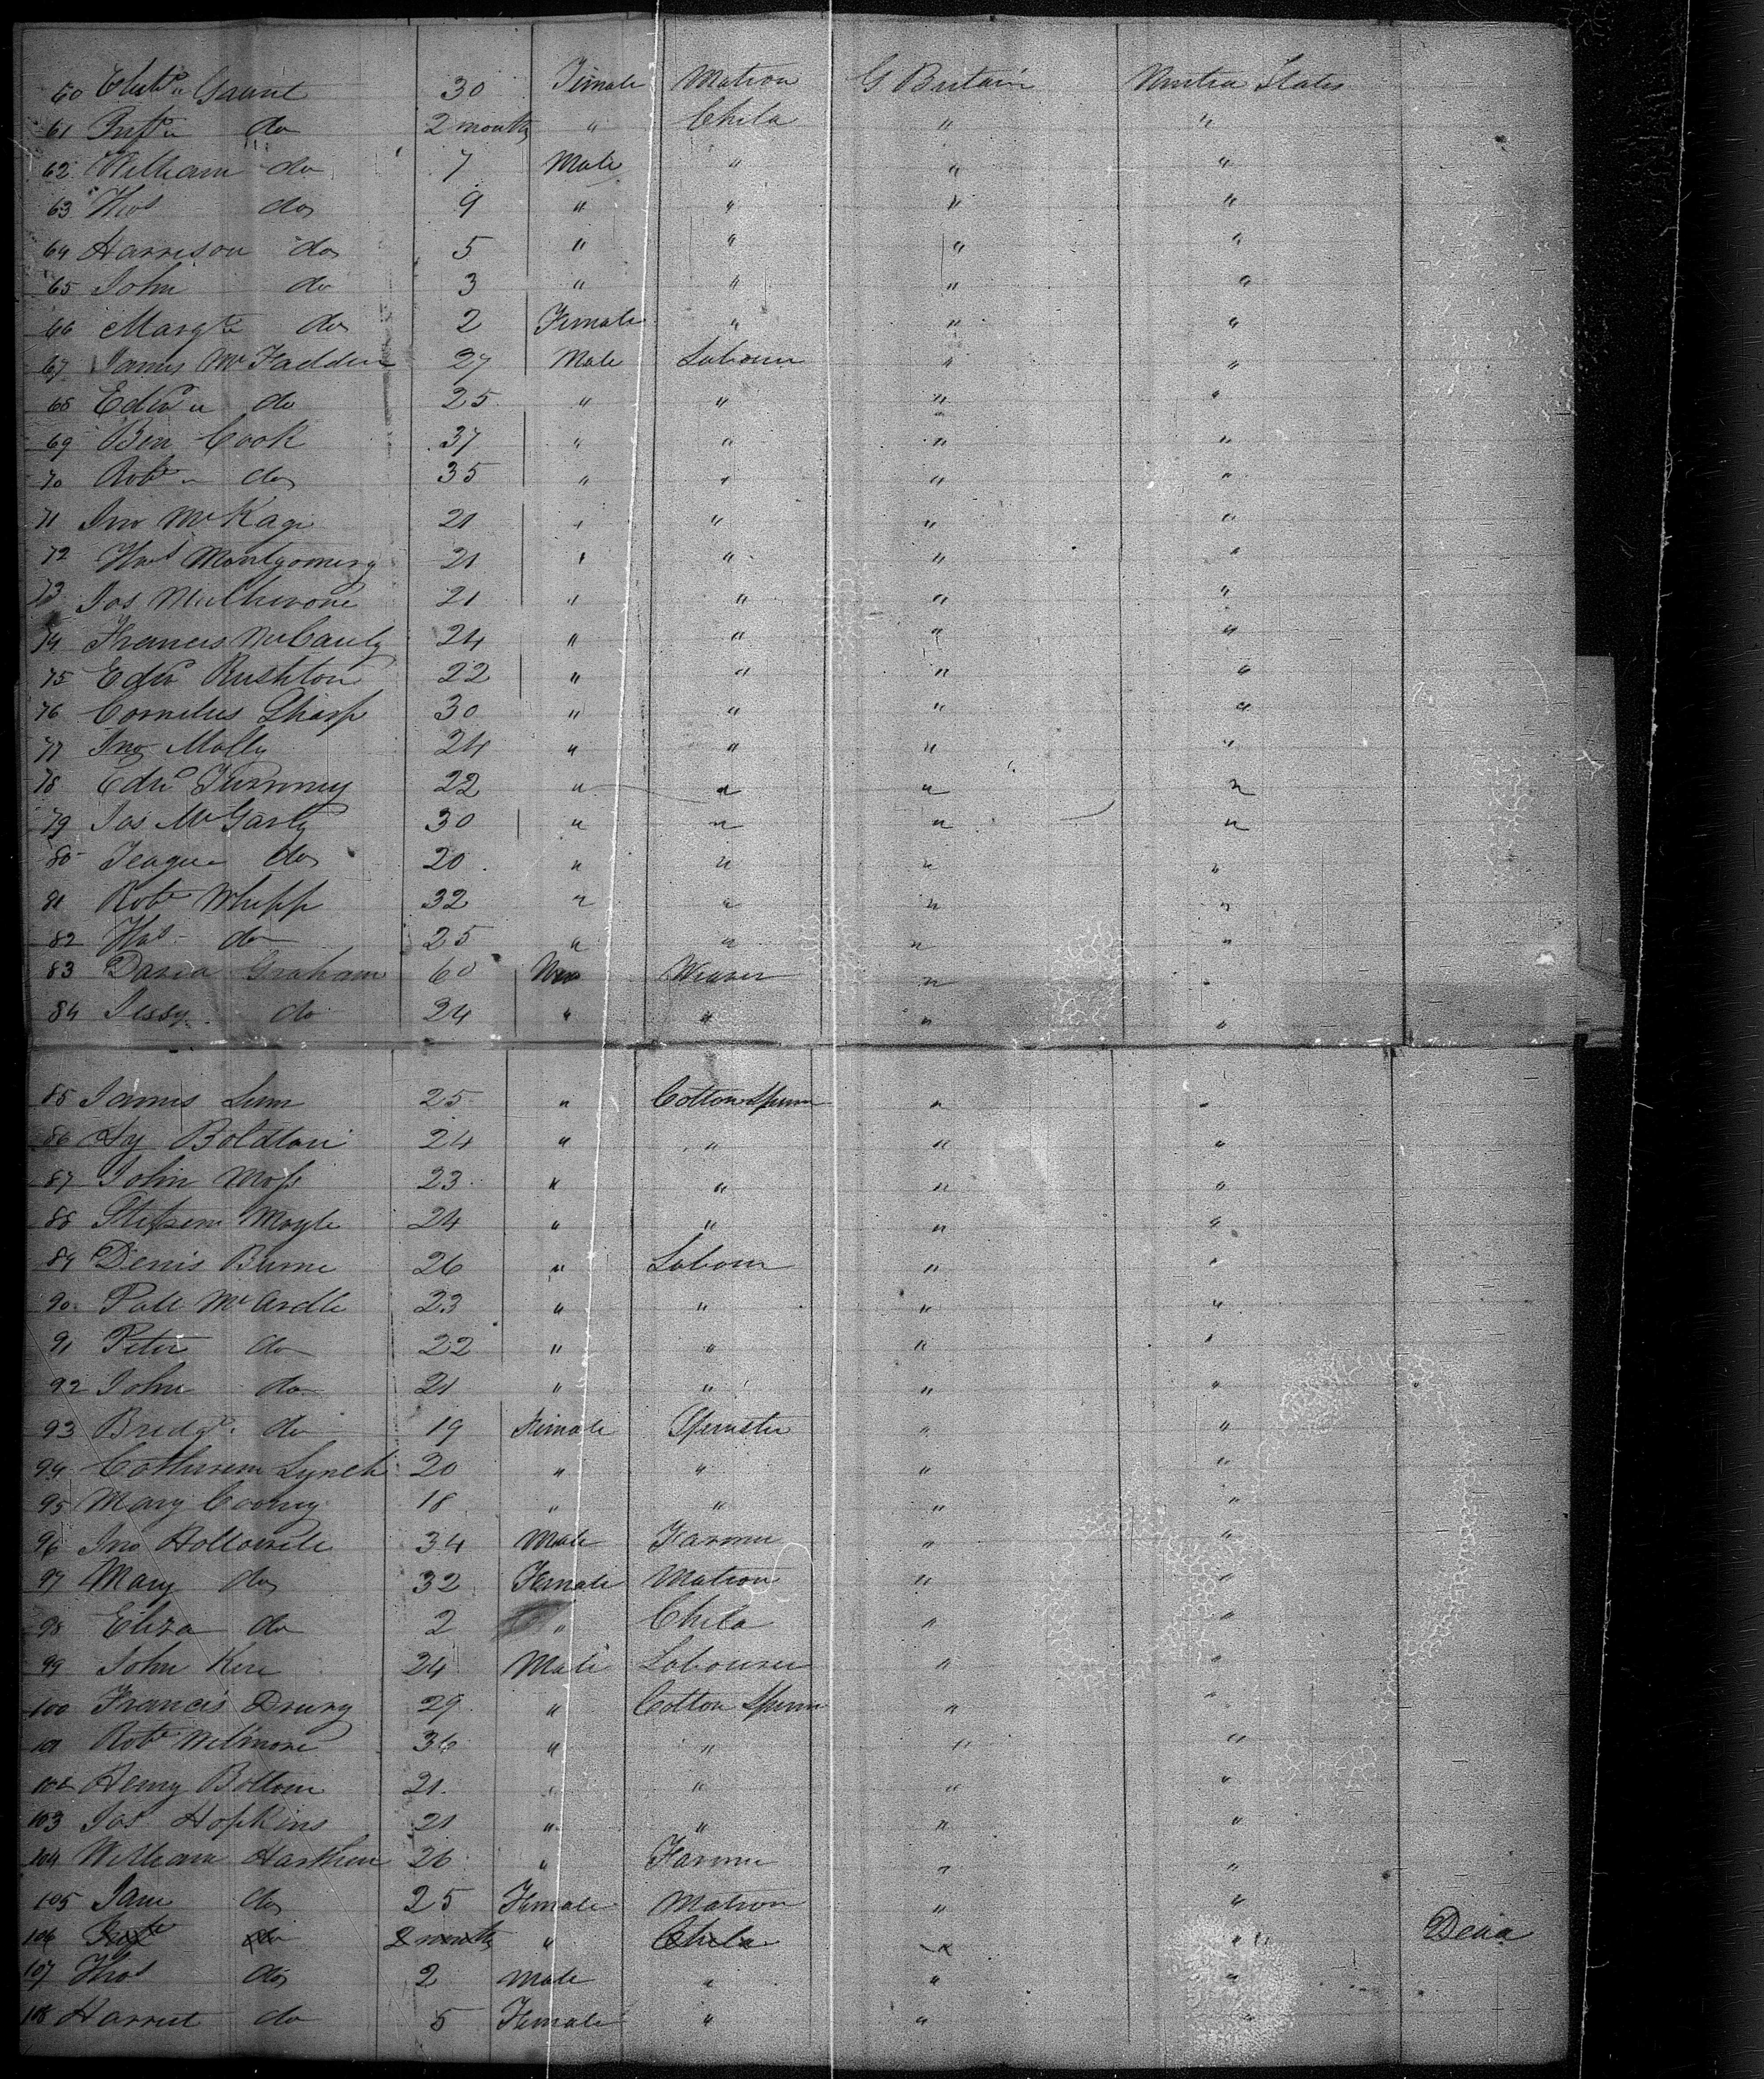 60 Elizth Gaunt 30 Female Matron G Britain United States
61 Inft " do 2 months " Child " "
62 William do 7 Male " " "
63 Thos do 9 " " " "
64 Harrison do 5 " " " "
65 John do 3 " " " "
66 Margt do 2 Female " " "
67 James McFadden 27 Male Labour " "
68 Edwd " do 25 " " " "
69 Ben Cook 37 " " " "
70 Robt " do 35 " " " "
71 Jno McKage 21 " " " "
72 Thos Montgomery 21 " " " "
73 Jas 21 " " " "
74 Francis McCauly 24 " " " "
75 Edwd Rushton 22 " " " "
76 Cornelius Sharp 30 " " " "
77 Jno Molly 24 " " " "
78 Edwd 22 " " " "
79 Jas McGarty 30 " " " "
80 Teague do 20 " " " "
81 Robt Whipp 32 " " " "
82 Thos do 25 " " " "
83 David Graham 60 Weaver " "
84 Jessy do 24 " " " "
85 James Lum 25 " Cotton Spinn " "
86 Hy Boldton 24 " " " "
87 John Moss 23 " " " "
88 Stephen Moyle 24 " " " "
89 Denis Burne 26 " Labour " "
90 Patt McArdle 23 " " " "
91 Peter do 22 " " " "
92 John do 21 " " " "
93 Bridgt do 19 Female Spinster " "
94 Catherine Lynch 20 " " " "
95 Mary Cooney 18 " " " "
96 Jno 34 Male Farmer " "
97 Mary do 32 Female Matron " "
98 Eliza do 2 " Child " "
99 John Kerr 24 Male Labourer " "
100 Francis Drury 29 " Cotton Spinn " "
101 Robt 36 " " " "
102 Henry Bottom 21 " " " "
103 Jas Hopkins 21 " " " "
104 William 26 " Farmer " "
105 Jane do 25 Female Matron " "
106 Inft do 2 months " Child " " Dead
107 Thos do 2 Male " " "
108 Harriet do 5 Female " " "